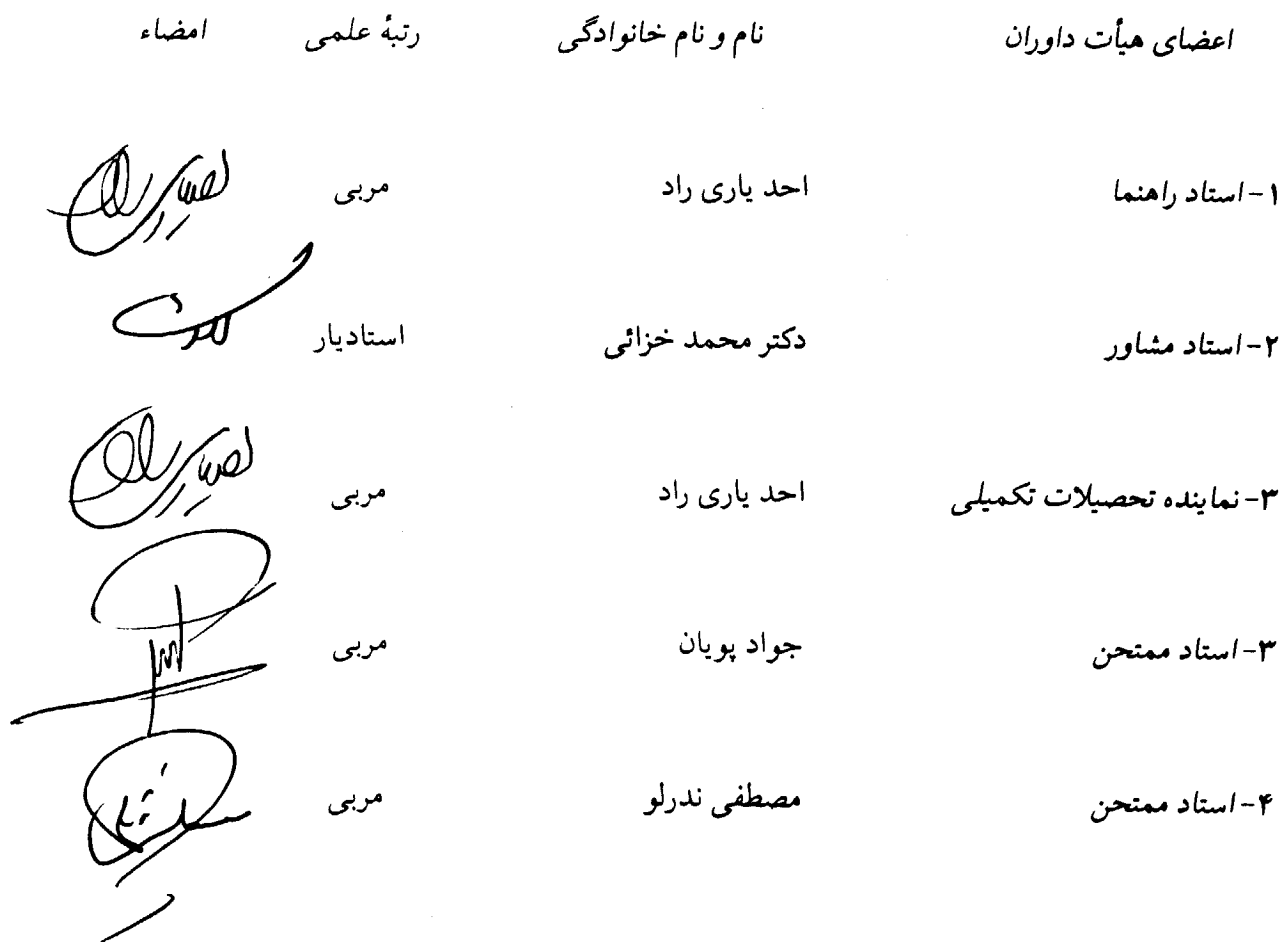 اعضای هیأت داوران نام و نام خانوادگی رتبهٔ علمی امضاء
۱- استاد راهنما احد یاری راد مربی
۲- استاد مشاور دکتر محمد خزائی استادیار
۳- نماینده تحصیلات تکمیلی احد یاری راد مربی
۳- استاد ممتحن جواد پویان مربی
۴- استاد ممتحن مصطفی ندرلو مربی